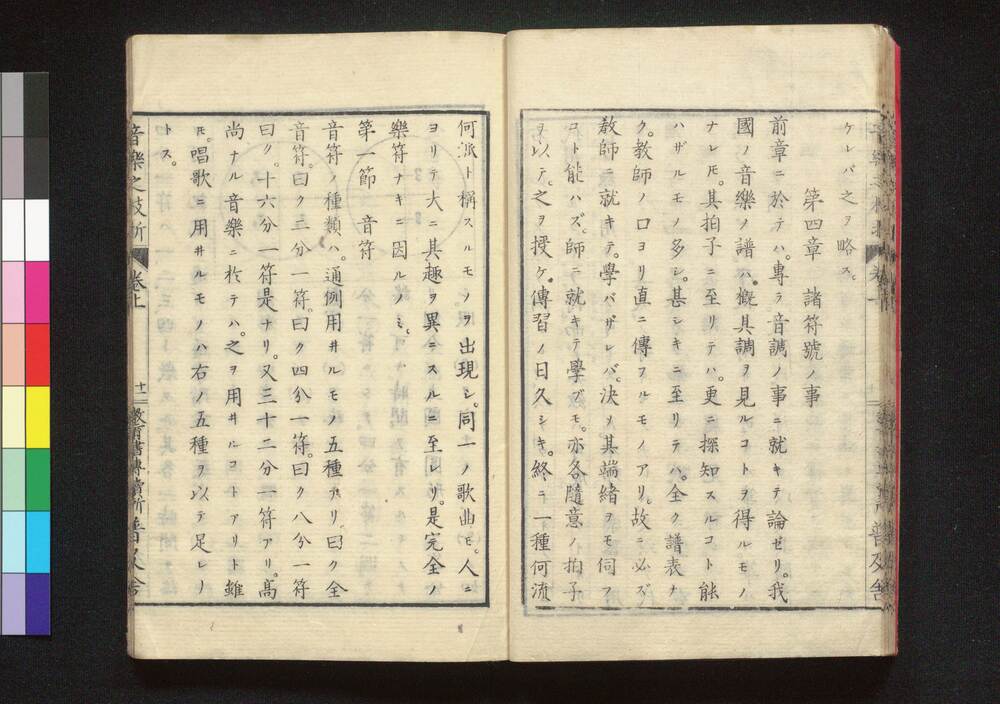 ケレバ之ヲ略ス。
第四章　諸符號ノ事
前章ニ於テハ。專ラ音調ノ事ニ就キテ論ゼリ。我
國ノ音樂ノ譜ハ。槪其調ヲ見ルコトヲ得ルモノ
ナレ𪜈。其拍子ニ至リテハ。更ニ探知スルコト能
ハザルモノ多シ。甚シキニ至リテハ。全ク譜表ナ
ク。教師ノ口ヨリ直ニ傳フルモノアリ。故ニ必ズ
教師ニ就キテ。學バザレバ。決シテ其端緒ヲモ伺フ
コト能ハズ。師ニ就キテ學ブモ。亦各隨意ノ拍子
ヲ以テ。之ヲ授ケ。傳習ノ日久シキ。終ニ一種何流
何派ト稱スルモノヲ出現シ。同一ノ歌曲モ。人ニ
ヨリテ大ニ其趣ヲ異ニスルニ至レリ。是完全ノ
樂符ナキニ因ルノミ。
第一節　音符
音符ノ種類ハ。通例用井ルモノ五種アリ曰ク全
音符。曰ク二分一符。曰ク四分一符。曰ク八分一符
曰ク。十六分一符是ナリ。又三十二分一符アリ。高
尚ナル音樂ニ於テハ。之ヲ用井ルコトアリト雖
𪜈。唱歌ニ用井ルモノハ右ノ五種ヲ以テ足レリ
トス。
音樂之枝折　卷上　十二　教育書專賣所普及舍